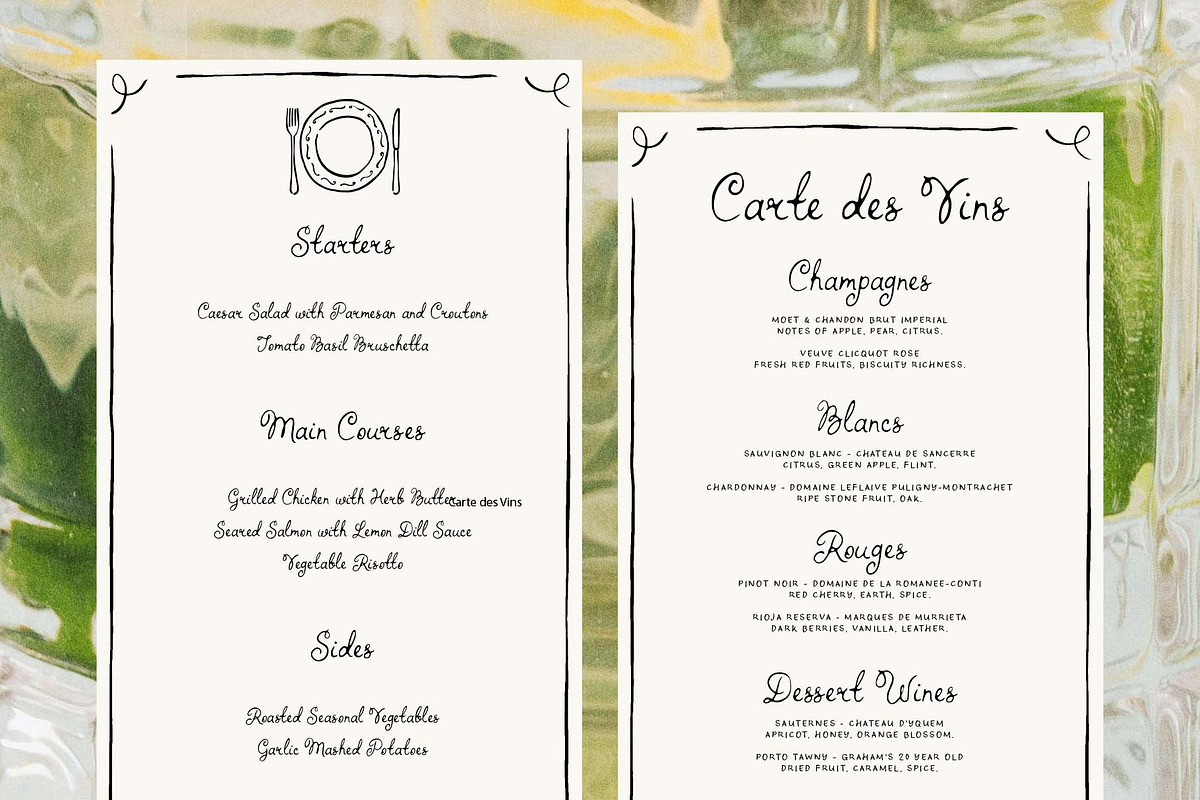 Starters
Caesar Salad with Parmesan and Croutons
Tomato Basil Bruschetta
Main Courses
Grilled Chicken with Herb Butter
Carte des Vins
Seared Salmon with Lemon Dill Sauce
Vegetable Risotto
Sides
Roasted Seasonal Vegetables
Garlic Mashed Potatoes
Carte des Vins
Champagnes
MOET & CHANDON BRUT IMPERIAL
NOTES OF APPLE, PEAR, CITRUS.
VEUVE CLICQUOT ROSE
FRESH RED FRUITS, BISCUITY RICHNESS.
Blancs
SAUVIGNON BLANC - CHATEAU DE SANCERRE
CITRUS, GREEN APPLE, FLINT.
CHARDONNAY - DOMAINE LEFLAIVE PULIGNY-MONTRACHET
RIPE STONE FRUIT, OAK.
Rouges
PINOT NOIR - DOMAINE DE LA ROMANEE-CONTI
RED CHERRY, EARTH, SPICE.
RIOJA RESERVA - MARQUES DE MURRIETA
DARK BERRIES, VANILLA, LEATHER.
Dessert Wines
SAUTERNES - CHATEAU D'YQUEM
APRICOT, HONEY, ORANGE BLOSSOM.
PORTO TAWNY - GRAHAM'S 20 YEAR OLD
DRIED FRUIT, CARAMEL, SPICE.